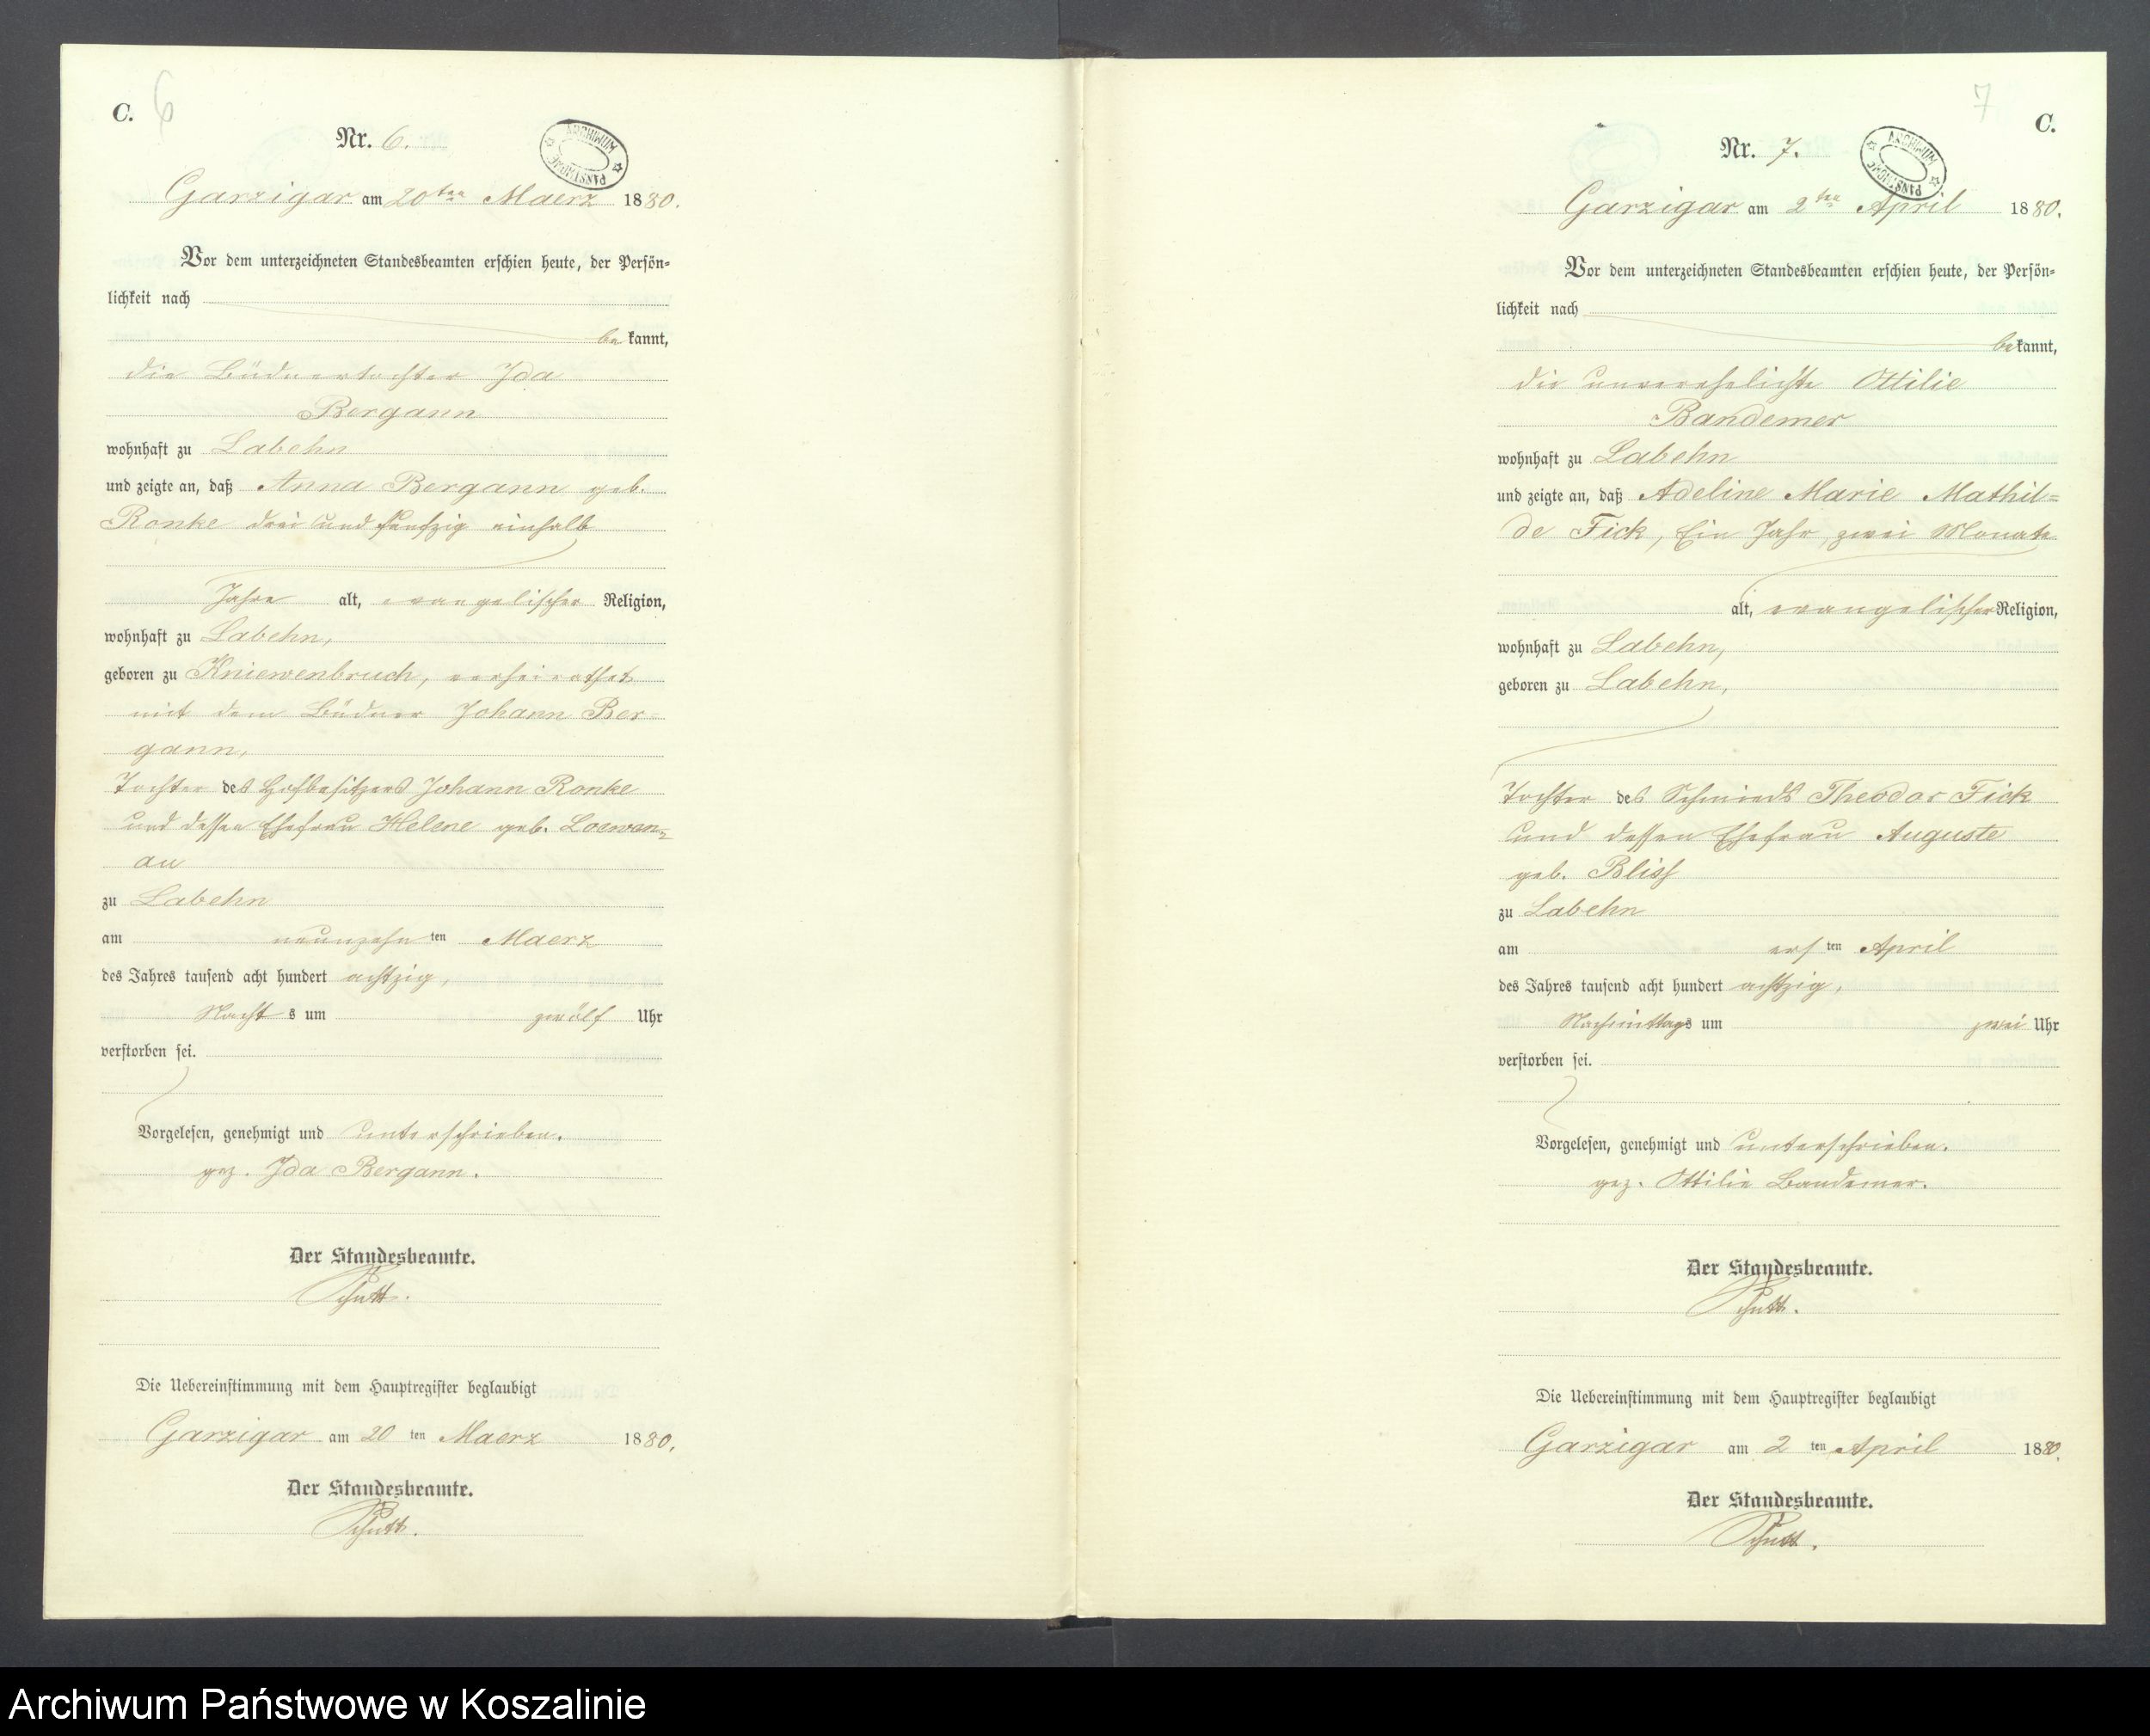 C. 6
Nr. 6.
ARCHIWUM PAŃSTWOWE
Garzigar am 20ten Maerz 1880.
Vor dem unterzeichneten Standesbeamten erschien heute, der Persön=
lichkeit nach
bekannt,
die Büdnertochter Ida
Bergann
wohnhaft zu Labehn
und zeigte an, daß Anna Bergann geb.
Ronke drei und fünfzig einhalb
Jahre alt, evangelischer Religion,
wohnhaft zu Labehn,
geboren zu Kniewenbruch, verheirathet
mit dem Büdner Johann Ber-
gann,
Tochter des Hofbesitzers Johann Ronke
und dessen Ehefrau Helene geb. Loewen=
au
zu Labehn
am neunzehnten Maerz
des Jahres tausend acht hundert achtzig,
Nachts um zwölf Uhr
verstorben sei.
Vorgelesen, genehmigt und unterschrieben.
gez. Ida Bergann.
Der Standesbeamte.
Schutt.
Die Uebereinstimmung mit dem Hauptregister beglaubigt
Garzigar am 20 ten Maerz 1880.
Der Standesbeamte.
Schutt.
7 C.
Nr. 7.
ARCHIWUM PAŃSTWOWE
Garzigar am 2ten April 1880.
Vor dem unterzeichneten Standesbeamten erschien heute, der Persön=
lichkeit nach
bekannt,
die unverehelichte Ottilie
Bandemer
wohnhaft zu Labehn
und zeigte an, daß Adeline Marie Mathil=
de Fick, Ein Jahr, zwei Monate
alt, evangelischer Religion,
wohnhaft zu Labehn,
geboren zu Labehn,
Tochter des Schmieds Theodor Fick
und dessen Ehefrau Auguste
geb. Bliss
zu Labehn
am ersten April
des Jahres tausend acht hundert achtzig,
Nachmittags um zwei Uhr
verstorben sei.
Vorgelesen, genehmigt und unterschrieben.
gez. Ottilie Bandemer.
Der Standesbeamte.
Schutt.
Die Uebereinstimmung mit dem Hauptregister beglaubigt
Garzigar am 2 ten April 1880.
Der Standesbeamte.
Schutt.
Archiwum Państwowe w Koszalinie